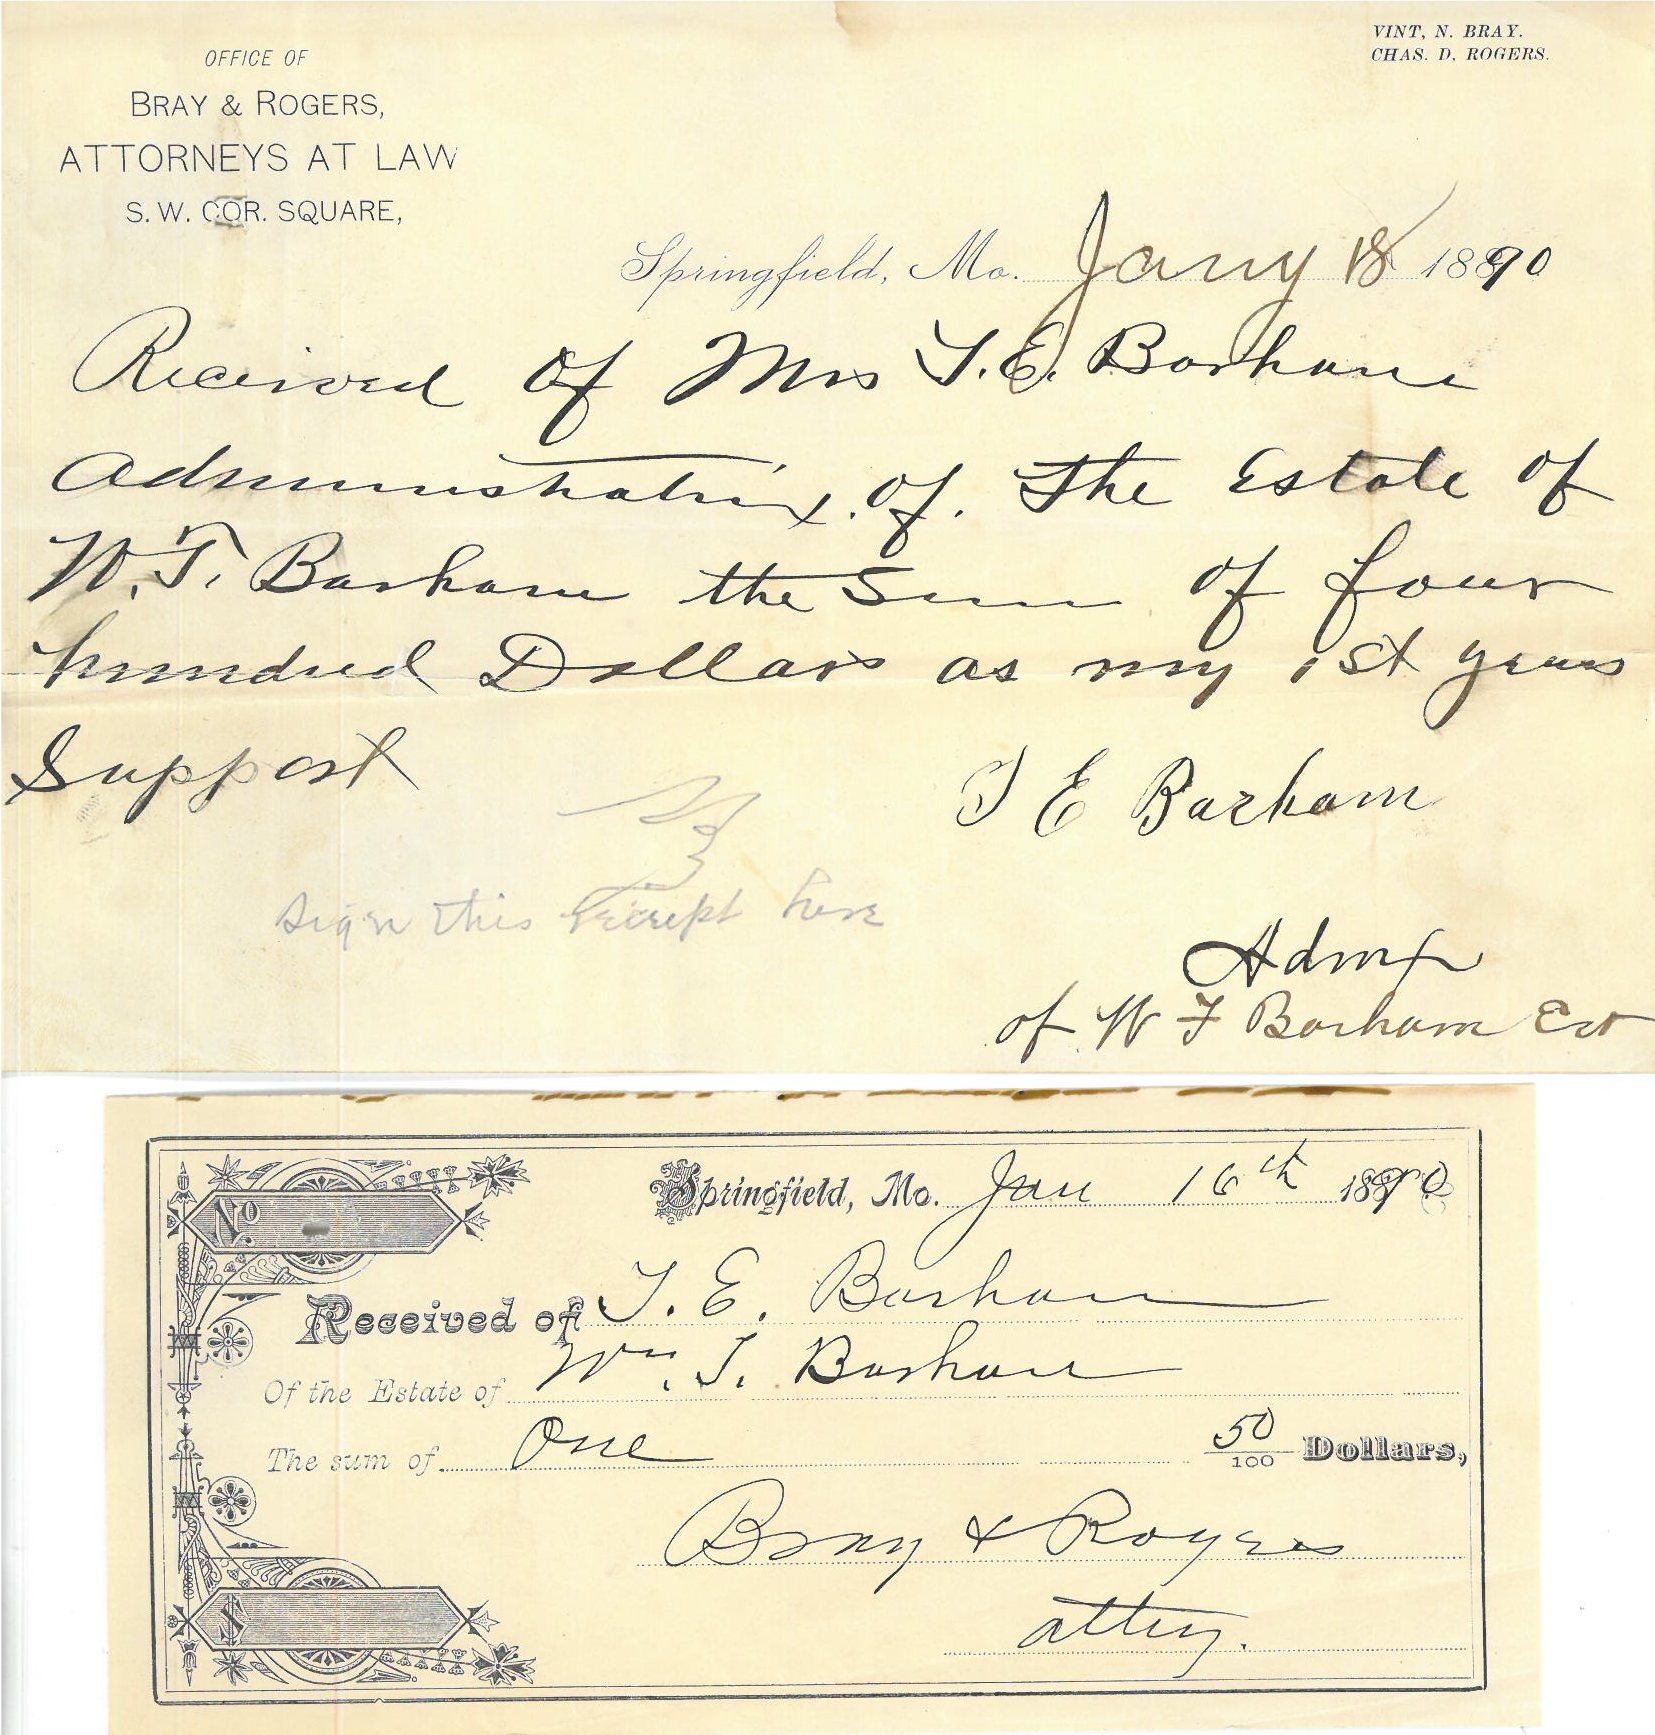 VINT, N. BRAY.
CHAS. D. ROGERS.
OFFICE OF
BRAY & ROGERS,
ATTORNEYS AT LAW
S. W. COR. SQUARE,
Springfield, Mo. Jany 18 1890
Received of Mrs T. E. Barham
Administratrix of. The Estate of
W. T. Barham the Sum of four
hundred Dollars as my 1st years
Support
T E Barham
Sign this receipt here
Admx
of W F Barham Est
No
Springfield, Mo. Jan 16th 1890
Received of T. E. Barham
Of the Estate of Wm. T. Barham
The sum of One 50/100 Dollars,
Bray & Rogers
$
atty.